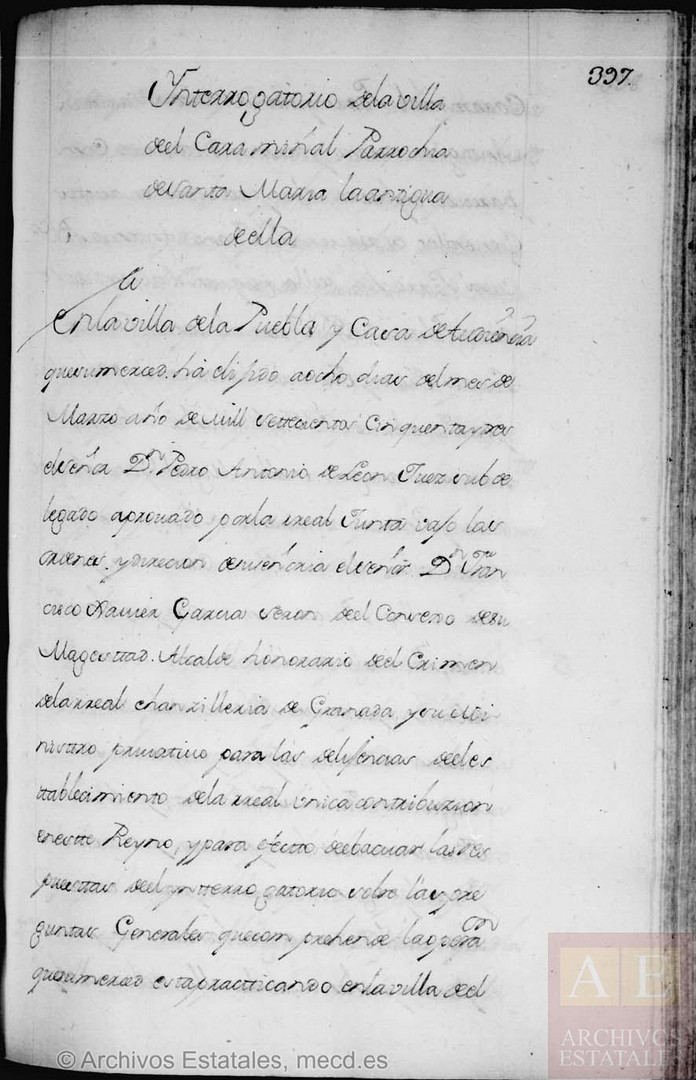 397.
Ynterrogatorio dela villa
deel Caraminãl Parrochia
deSanta Maria la antigua
deella
En la villa dela Puebla y Casa de audiencia
que su merced. ha elixido a ocho dias del mes de
Marzo año de mill settecientos Cinquenta y tres
el señor Dn Pedro Antonio de Leon Juez sub de
legado aprouado por la rreal Junta vajo las
ordenes. y direcion de su señoria el señor Dn Fran
cisco Xauier Garcia veron deel Consexo de su
Magesttad. Alcalde honorario deel Crimen
dela rreal chanzilleria de Granada y su Mi
nistro priuatiuo para las delixencias deel es
ttablecimiento dela rreal vnica contribuzion
en estte Reyno, y para efecto de ebacuar las res
puesttas deel ynterrogatorio sobre las pre
guntas Generales que comprehende la operaon
que su merced esta practticando en la villa deel
© Archivos Estatales, mecd.es
AE
ARCHIVOS
ESTATALE